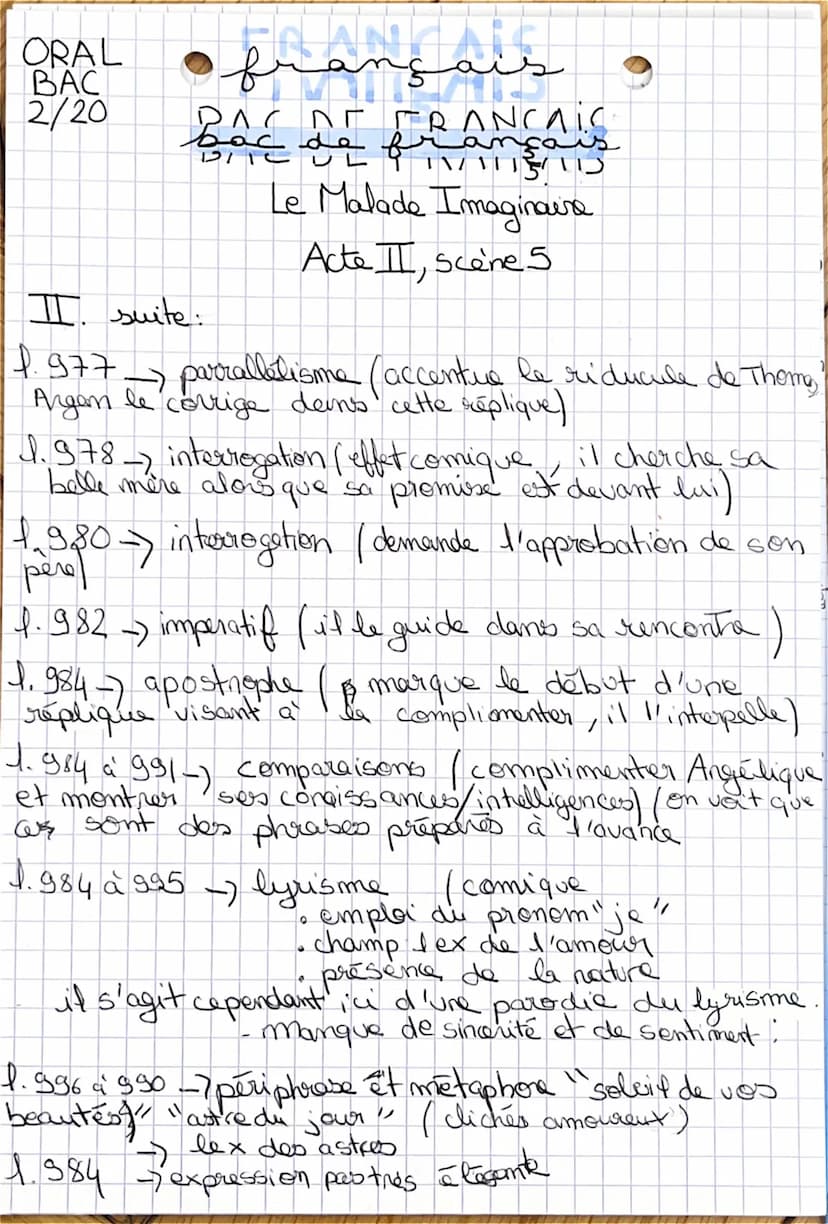 ORAL
BAC
2/20
FRANÇAIS
français
BAC DE FRANÇAIS
bac de français
Le Malade Imaginaire
Acte II, scène 5
II. suite:
l. 977 → parrallélisme (accentue le riducule de Thomas,
Argan le corrige dans cette réplique)
l. 978 → interrogation (effet comique, il cherche sa
belle mère alors que sa promise est devant lui)
l. 980 → interrogation (demande l'approbation de son
père)
l. 982 → imperatif (il le guide dans sa rencontre)
l. 984 → apostrophe (marque le début d'une
réplique visant à la complimenter, il l'interpelle)
l. 984 à 991 → comparaisons (complimenter Angélique
et montrer ses conaissances/intelligences) (on voit que
ces sont des phrases préparés à l'avance
l. 984 à 995 → lyrisme (comique
• emploi du pronom "je"
• champ lex de l'amour
• présence de la nature
il s'agit cependant ici d'une parodie du lyrisme.
- manque de sincérité et de sentiment:
l. 996 à 990 → périphrase et métaphore "soleil de vos
beautés" "astre du jour" (clichés amoureux)
→ lex des astres
l. 984 → expression pas très élégante